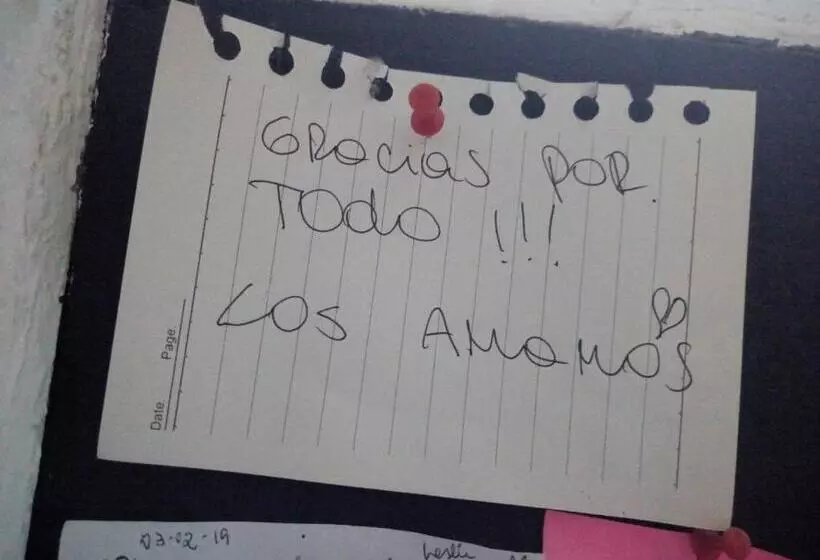 GRacias POR
TODO !!!
LOS AMAMOS
Page
Date
03-02-19